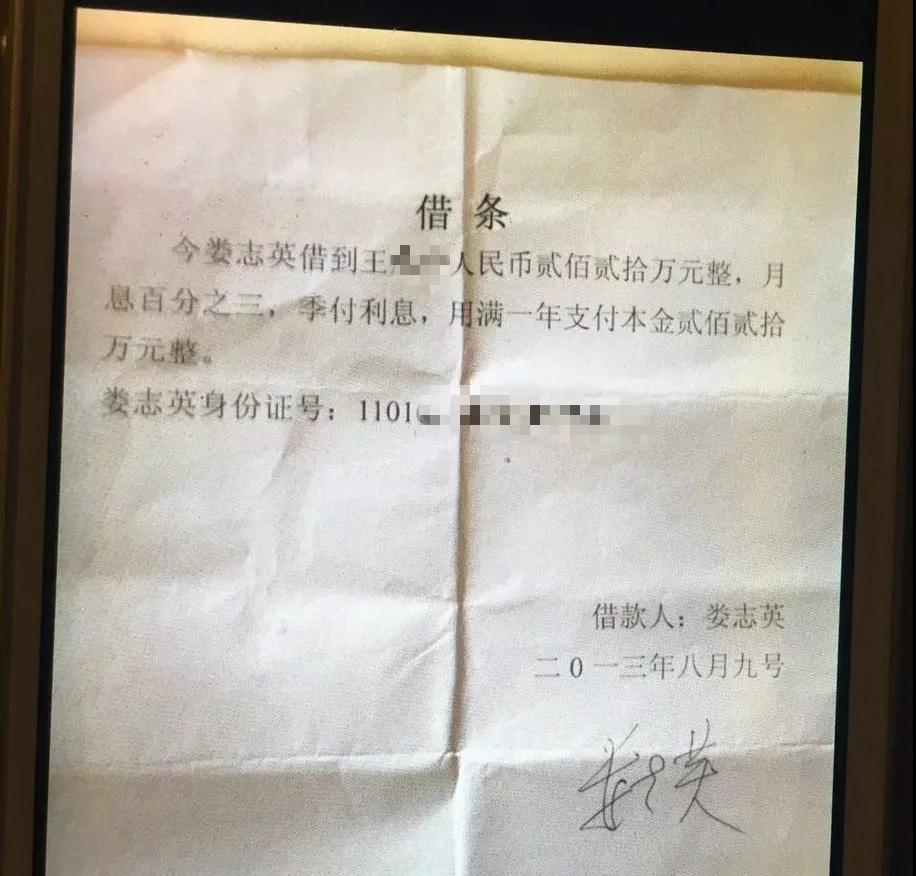 借条
今娄志英借到王 人民币贰佰贰拾万元整，月
息百分之三，季付利息，用满一年支付本金贰佰贰拾
万元整。
娄志英身份证号：1101
借款人：娄志英
二0一三年八月九号
娄志英